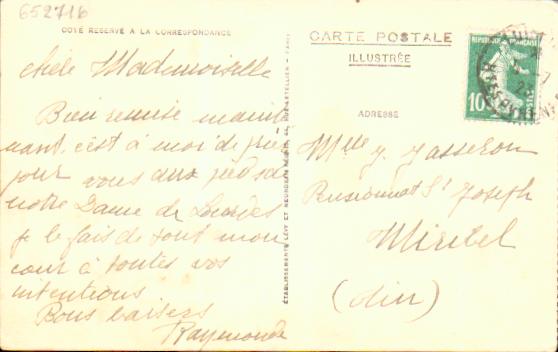 652716
COTÉ RÉSERVÉ A LA CORRESPONDANCE
Chère Mademoiselle
Bien remise mainte
nant c'est à moi de prier
pour vous aux pieds de
notre Dame de Lourdes
je le fais de tout mon
cœur à toutes vos
intentions
Bons baisers
Raymonde
CARTE POSTALE
ILLUSTRÉE
ADRESSE
Mlle J. Jasseron
Pensionnat St Joseph
Miribel
(Ain)
RÉPUBLIQUE FRANÇAISE
10
ÉTABLISSEMENTS LÉVY ET NEURDEIN RÉUNIS
PARIS